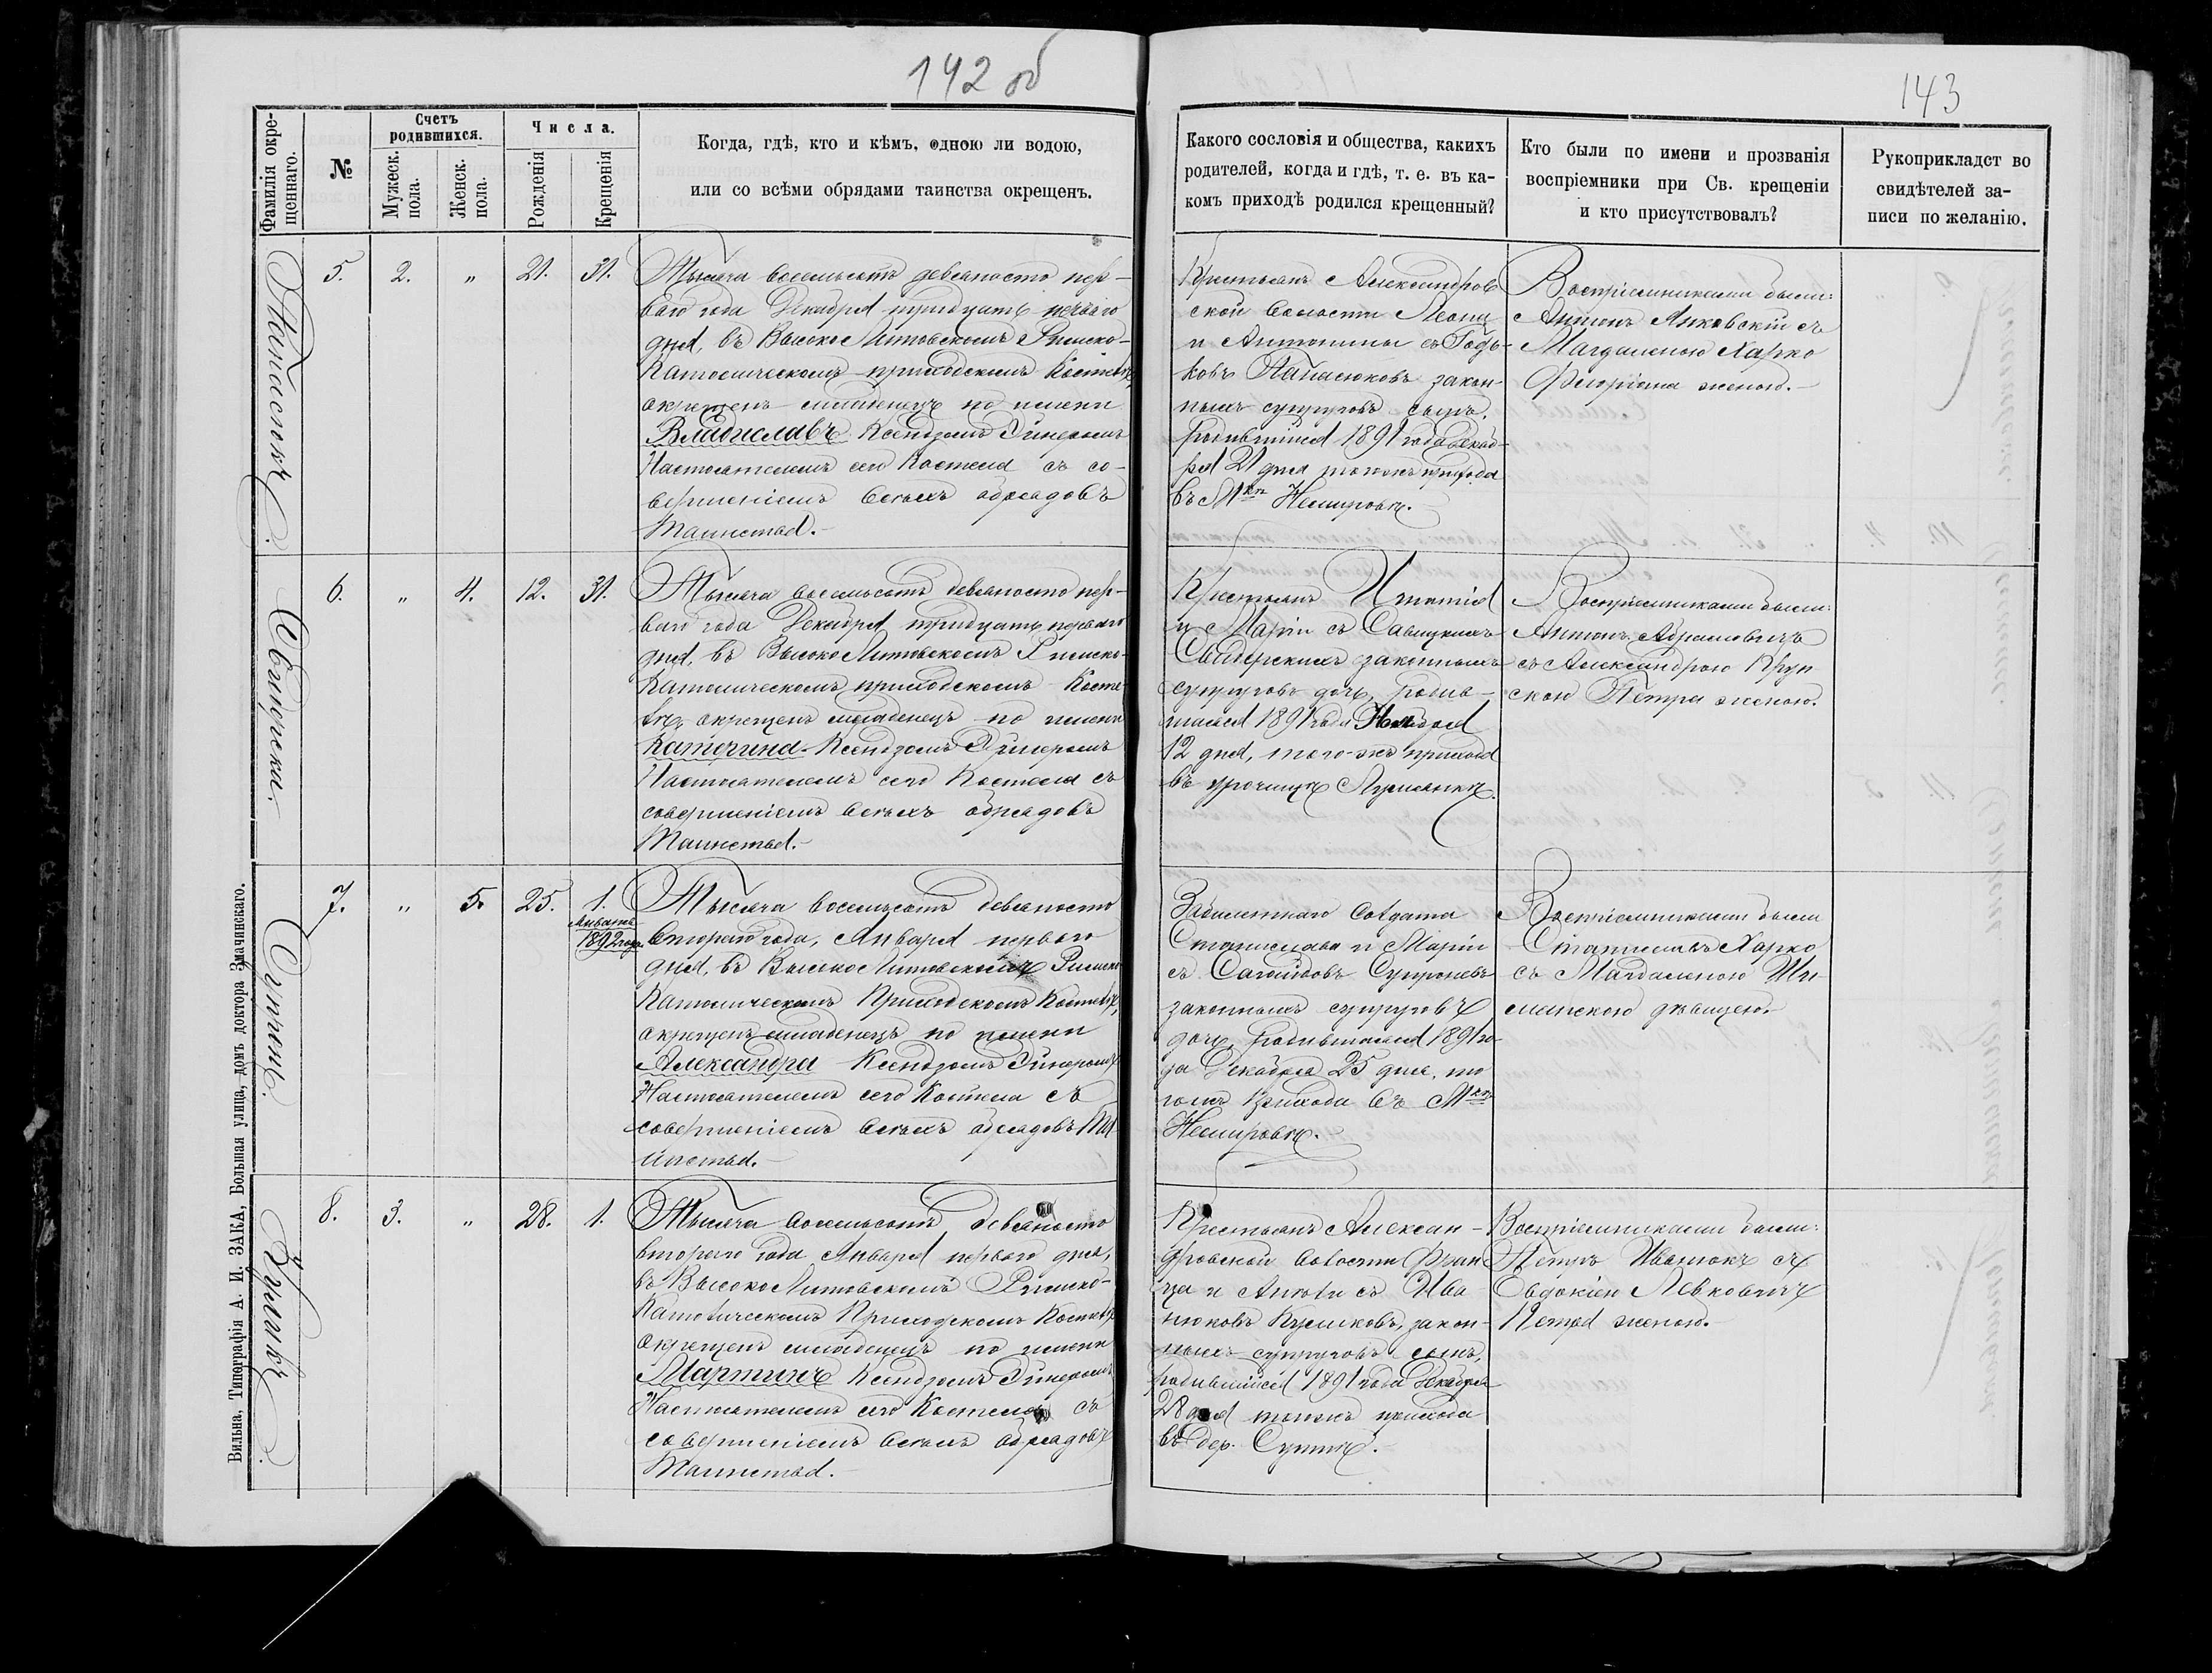 142 об
143
Фамилія окре-
щеннаго.
№
Счетъ
родившихся.
Мужеск.
пола.
Женск.
пола.
Числа.
Рожденія
Крещенія
Когда, гдѣ, кто и кѣмъ, одною ли водою,
или со всѣми обрядами таинства окрещенъ.
Какого сословія и общества, какихъ
родителей, когда и гдѣ, т. е. въ ка-
комъ приходѣ родился крещенный?
Кто были по имени и прозванія
воспріемники при Св. крещеніи
и кто присутствовалъ?
Рукоприкладст во
свидѣтелей за-
писи по желанію.
5. 2. „ 21. 31.
Тысяча восемьсотъ девяносто пер-
ваго года Декабря тридцать перваго
дня, въ Высоко Литовскомъ Римско-
Католическомъ приходскомъ Костелѣ,
окрещенъ младенецъ по имени
Владиславъ Ксендзомъ
Настоятелемъ сего Костела съ со-
вершеніемъ всѣхъ обрядовъ
Таинства.-
Крестьянъ Александров
ской волости Леона
и Антонины съ
закон-
ныхъ супруговъ сынъ,
родившійся 1891 года Декаб-
ря 21 дня того-жъ прихода
въ Мкѣ Немировѣ.
Воспріемниками были:
Антонъ Янковскій съ
Магдаленою Харко
Флоріана женою.-
Свицерски.
6. „ 4. 12. 31.
Тысяча восемьсотъ девяносто пер-
ваго года Декабря тридцать перваго
дня, въ Высоко Литовскомъ Римско-
Католическомъ приходскомъ Косте-
лѣ, окрещенъ младенецъ по имени
Катерина Ксендзомъ
Настоятелемъ сего Костела съ
совершеніемъ всѣхъ обрядовъ
Таинства.-
Крестьянъ Игнатія
и Маріи съ Савицкихъ
законныхъ
супруговъ дочь, родив-
шаяся 1891 года
12 дня, того-жъ прихода
въ урочищѣ
Воспріемниками были:
Антонъ Абрамовичъ
съ Александрою Круп
скою Петра женою.
Супронъ.
7. „ 5. 25. 1.
Январь
1892 года.
Тысяча восемьсотъ девяносто
втораго года, Января перваго
дня, въ Высоко Литовскомъ Римско
Католическомъ Приходскомъ Костелѣ,
окрещенъ младенецъ по имени
Александра Ксендзомъ
Настоятелемъ сего Костела съ
совершеніемъ всѣхъ обрядовъ Та-
инства.
Солдата
Станислава и Маріи
съ Супроновъ
законныхъ супруговъ
дочь, родившаяся 1891 го-
да Декабря 25 дня, то
гожъ прихода въ Мкѣ
Немировѣ.
Воспріемниками были
Станиславъ Харко
съ Магдаленою
дѣвицею.
Куликъ.
8. 3. „ 28. 1.
Тысяча восемьсотъ девяносто
второго года Января перваго дня,
въ Высоко Литовскомъ Римско-
Католическомъ Приходскомъ Костелѣ
окрещенъ младенецъ по имени
Мартинъ Ксендзомъ
Настоятелемъ сего Костела съ
совершеніемъ всѣхъ обрядовъ
Таинства.-
Крестьянъ Алексан-
дровской волости Фран-
ца и съ Ива
нюковъ Куликовъ, закон-
ныхъ супруговъ сынъ,
родившійся 1891 года Декабря
28 дня того-жъ прихода
въ дер.
Воспріемниками были:
Петръ Иванюкъ съ
Евдокіею Левковичъ
Петра женою.
Вильна, Типографія А. И. ЗАКА, Большая улица, домъ доктора Змачинскаго.